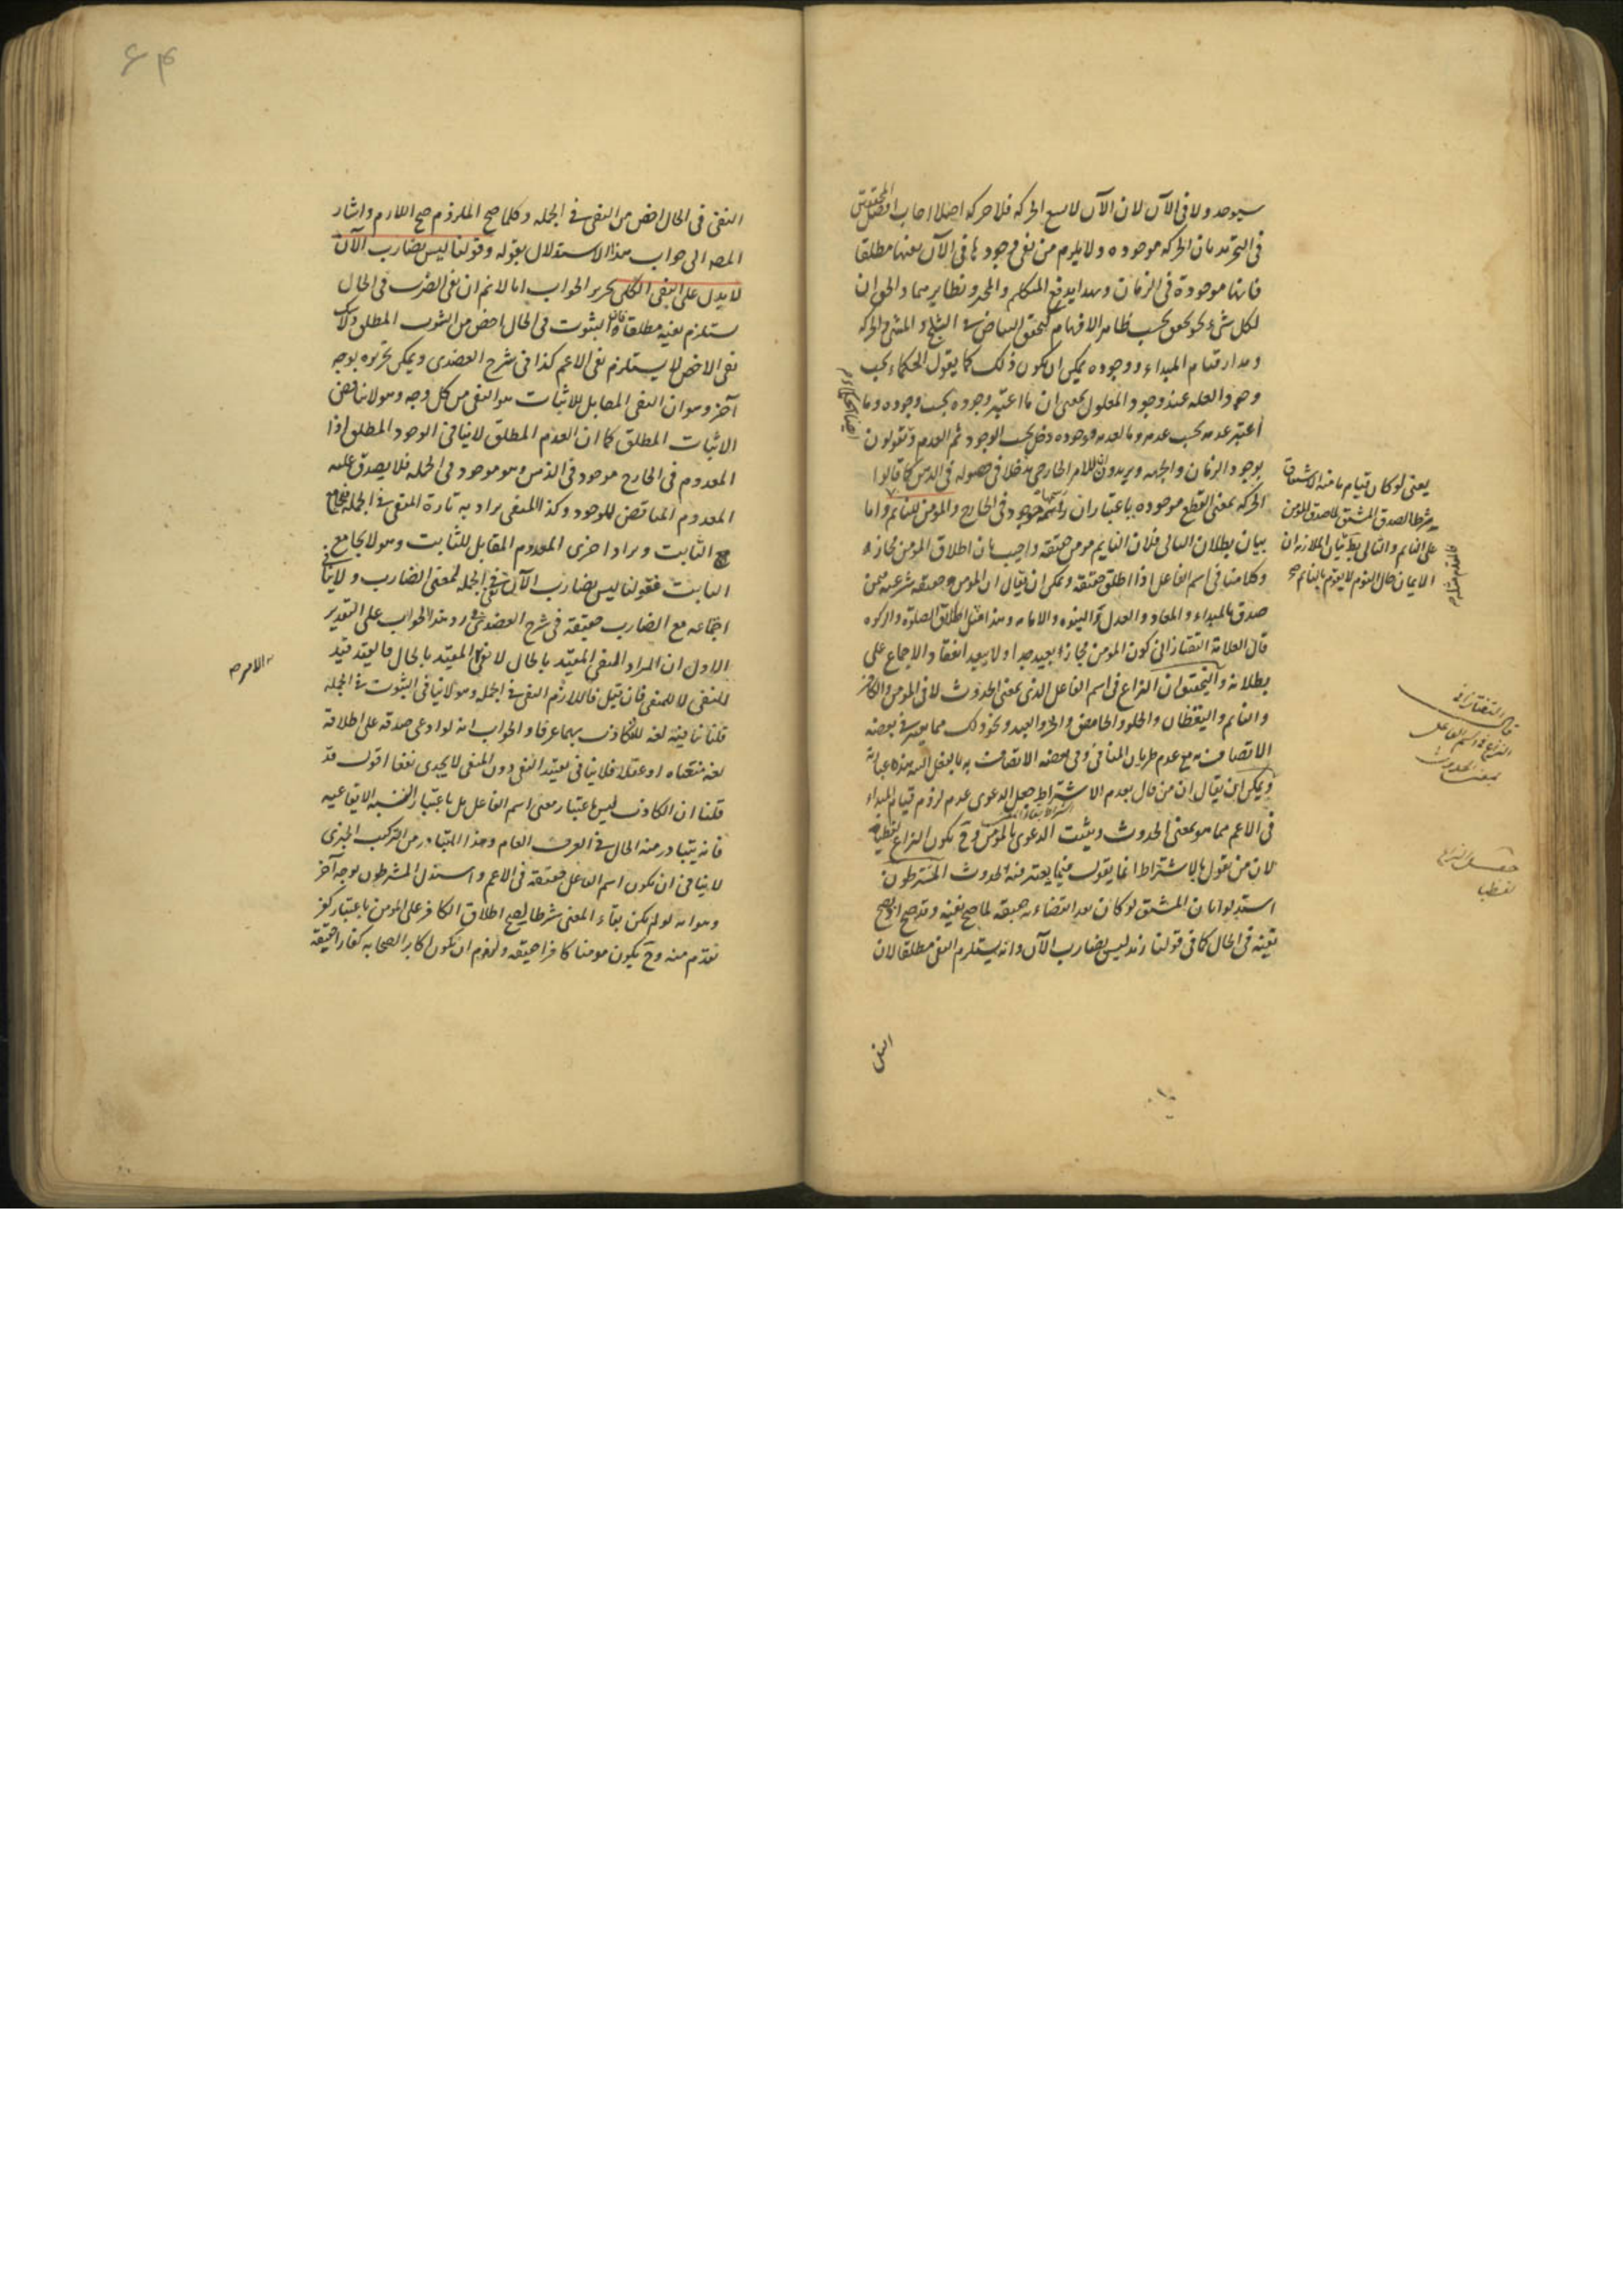 سيوجد ولا في الآن لان الآن لا يسع الحركه فلا حركه اصلا اجاب افضل المحققين
في التجريد بان الحركه موجوده ولا يلزم من نفي وجودها في الآن نفيها مطلقا
فانها موجودة في الزمان وبهذا يدفع المتكلم والمخبر ونظايرهما والحق ان
لكل شيء نحو تحقق بحسب ظاهر الافهام كتحقق البياض في الثلج والمشي والحركه
ومدار قيام المبداء ووجوده يمكن ان يكون ذلك كما يقول الحكماء يجب
وجود العله عند وجود المعلول بمعنى ان ما اعتبر وجوده بحسب وجوده وما
اعتبر عدمه بحسب عدمه وما لعدمه ووجوده دخل بحسب الوجود ثم العدم وتقولون
بوجود الزمان والجهه ويريدون ان للامر الخارجي مدخلا في حصوله في الذهن كما قالوا
الحركه بمعنى القطع موجوده باعتبار ان راسمها موجود في الخارج والمؤمن للنائم واما
بيان بطلان التالي فلان النايم مومن حقيقه واجيب بان اطلاق المومن مجازه
وكلامنا في اسم الفاعل اذا اطلق حقيقه ويمكن ان يقال ان المومن حقيقه شرعيه فمن
صدق بالمبداء والمعاد والعدل والنبوه والامامه وهذا مثل اطلاق الصلوة والزكوه
قال العلامة التفتازاني كون المومن مجازا بعيد جدا ولا يبعد انعقاد الاجماع على
بطلانه والتحقيق ان النزاع في اسم الفاعل الذي بمعنى الحدوث لا في المومن والكافر
والنايم واليقظان والحلو والحامض والحر والعبد ونحو ذلك مما يعتبر في بعضه
الاتصاف به مع عدم طريان المنافي وفي بعضه الاتصاف به بالفعل البته هذه عبارته
ويمكن ان يقال ان من قال بعدم الاشتراط جعل الدعوى عدم لزوم قيام المبداء
في الاعم مما هو بمعنى الحدوث ويثبت الدعوى بالمومن وح يكون النزاع لفظيا
لان من يقول بالاشتراط انما يقول فيما يعتبر فيه الحدوث المشترطون
استدلوا بان المشتق لو كان بعد انقضاءه حقيقه لما صح نفيه وقد صح اذ يصح
نفيه في الحال كما في قولنا زيد ليس بضارب الآن وانه يستلزم النفي مطلقا لان
النفي
يعني لو كان قيام ما منه الاشتقاق
شرطا لصدق المشتق لما صدق المومن
على النايم والتالي بط بيان الملازمه ان
الايمان حال النوم لا يقوم بالنايم
قال التفتازاني
النزاع في اسم الفاعل
بمعنى الحدوث
حقيقه النزاع
لفظيا
۶۴
النفي في الحال اخص من النفي في الجمله وكلما صح الملزوم صح اللازم واشار
المصه الى جواب هذا الاستدلال بقوله وقولنا ليس بضارب الآن
لا يدل على النفي الكلي تحرير الجواب انا لا نم ان نفي الضرب في الحال
يستلزم نفيه مطلقا فان الثبوت في الحال اخص من الثبوت المطلق ولا شك
نفي الاخص لا يستلزم نفي الاعم كذا في شرح العضدي ويمكن تحريره بوجه
آخر وهو ان النفي المقابل للاثبات هو النفي من كل وجه وهو لا يناقض
الاثبات المطلق كما ان العدم المطلق لا ينافي الوجود المطلق اذا
المعدوم في الخارج موجود في الذهن وهو موجود في الجمله فلا يصدق عليه
المعدوم المناقض للوجود وكذا المنفي يراد به تارة المنفي في الجمله فيجامع
الثابت ويراد اخرى المعدوم المقابل للثابت وهو لا يجامع
الثابت فقولنا ليس بضارب الآن نفي في الجمله لمعنى الضارب ولا ينافي
اجتماعه مع الضارب حقيقه في شرح العضدي ورد هذا الجواب على التقدير
الاول ان المراد النفي المقيد بالحال لا نفي المقيد بالحال فالقيد قيد
للنفي لا للمنفي فان قيل فاللازم النفي في الجمله وهو لا ينافي الثبوت في الجمله
قلنا ينافيه لغه للتكاذب بهما عرفا والجواب انه لو ادعى صدقه على اطلاقه
لغه منعناه او عقلا فلا ينافي تقييد النفي دون المنفي لا يجدي نفعا اقول قد
قلنا ان التكاذب ليس باعتبار معنى اسم الفاعل بل باعتبار النسبه الايقاعيه
فانه يتبادر منه الحال في العرف العام وهذا المتبادر من التركيب الخبري
لا ينافي ان يكون اسم الفاعل حقيقه في الاعم واستدل المشترطون بوجه آخر
وهو انه لو لم يكن بقاء المعنى شرطا لصح اطلاق الكافر على المومن باعتبار كفر
تقدم منه وح يكون مومنا كافرا حقيقه ولزم ان يكون اكابر الصحابه كفارا حقيقة